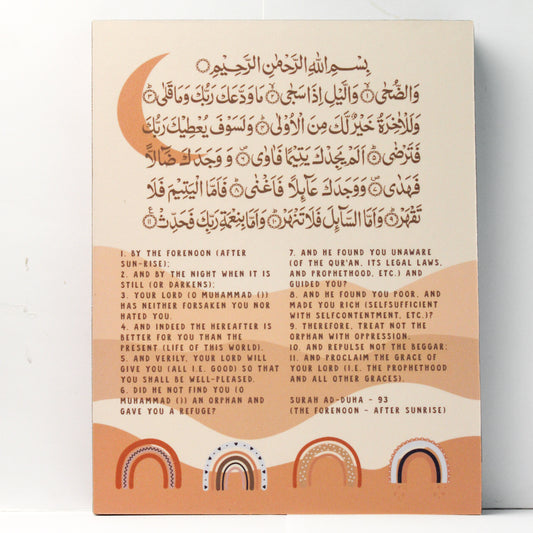 بِسْمِ اللهِ الرَّحْمٰنِ الرَّحِيْمِ
وَالضُّحٰى ۝١ وَالَّيْلِ اِذَا سَجٰى ۝٢ مَا وَدَّعَكَ رَبُّكَ وَمَا قَلٰى ۝٣
وَلَلْاٰخِرَةُ خَيْرٌ لَّكَ مِنَ الْاُوْلٰى ۝٤ وَلَسَوْفَ يُعْطِيْكَ رَبُّكَ
فَتَرْضٰى ۝٥ اَلَمْ يَجِدْكَ يَتِيْمًا فَاٰوٰى ۝٦ وَوَجَدَكَ ضَآلًّا
فَهَدٰى ۝٧ وَوَجَدَكَ عَآىِٕلًا فَاَغْنٰى ۝٨ فَاَمَّا الْيَتِيْمَ فَلَا
تَقْهَرْ ۝٩ وَاَمَّا السَّآىِٕلَ فَلَا تَنْهَرْ ۝١٠ وَاَمَّا بِنِعْمَةِ رَبِّكَ فَحَدِّثْ ۝١١
1. BY THE FORENOON (AFTER
SUN-RISE);
2. AND BY THE NIGHT WHEN IT IS
STILL (OR DARKENS);
3. YOUR LORD (O MUHAMMAD ())
HAS NEITHER FORSAKEN YOU NOR
HATED YOU.
4. AND INDEED THE HEREAFTER IS
BETTER FOR YOU THAN THE
PRESENT (LIFE OF THIS WORLD).
5. AND VERILY, YOUR LORD WILL
GIVE YOU (ALL I.E. GOOD) SO THAT
YOU SHALL BE WELL-PLEASED.
6. DID HE NOT FIND YOU (O
MUHAMMAD ()) AN ORPHAN AND
GAVE YOU A REFUGE?
7. AND HE FOUND YOU UNAWARE
(OF THE QUR'AN, ITS LEGAL LAWS,
AND PROPHETHOOD, ETC.) AND
GUIDED YOU?
8. AND HE FOUND YOU POOR, AND
MADE YOU RICH (SELFSUFFICIENT
WITH SELFCONTENTMENT, ETC.)?
9. THEREFORE, TREAT NOT THE
ORPHAN WITH OPPRESSION,
10. AND REPULSE NOT THE BEGGAR;
11. AND PROCLAIM THE GRACE OF
YOUR LORD (I.E. THE PROPHETHOOD
AND ALL OTHER GRACES).
SURAH AD-DUHA - 93
(THE FORENOON - AFTER SUNRISE)